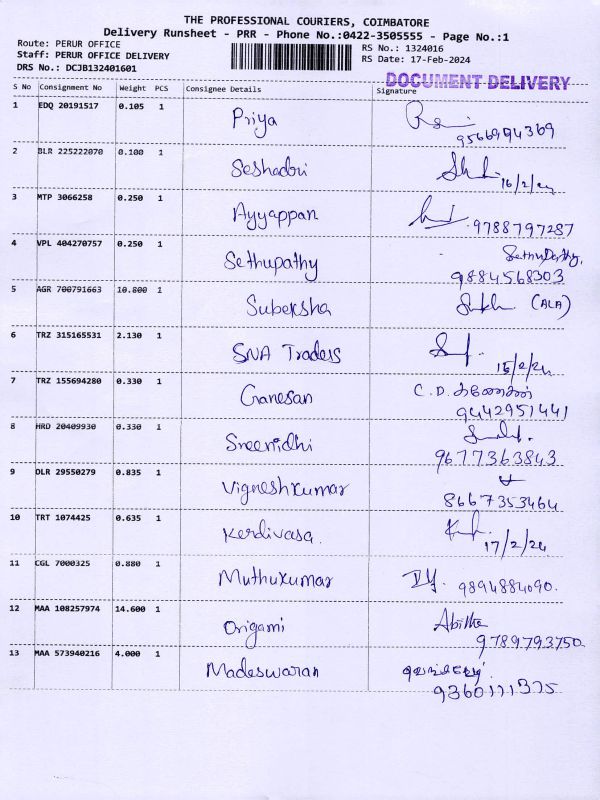 THE PROFESSIONAL COURIERS, COIMBATORE
Delivery Runsheet - PRR - Phone No.:0422-3505555 - Page No.:1
Route: PERUR OFFICE
Staff: PERUR OFFICE DELIVERY
DRS No.: DCJB132401601
RS No.: 1324016
RS Date: 17-Feb-2024
DOCUMENT DELIVERY
S No Consignment No Weight PCS Consignee Details Signature
1 EDQ 20191517 0.105 1 Priya
9566994369
2 BLR 225222070 0.100 1 Seshadri
16/2/24
3 MTP 3066258 0.250 1 Ayyappan
9788797287
4 VPL 404270757 0.250 1 Sethupathy
9884568303
5 AGR 700791663 10.800 1 Subeksha (ALA)
6 TRZ 315165531 2.130 1 SNA Traders
15/2/24
7 TRZ 155694280 0.330 1 Ganesan C.D. கணேசன்
9442951441
8 HRD 20409930 0.330 1 Sreenidhi
9677363843
9 DLR 29550279 0.835 1 Vigneshkumar
8667353464
10 TRT 1074425 0.635 1 Kerdivasa.
17/2/24
11 CGL 7000325 0.880 1 Muthukumar 9894884090.
12 MAA 108257974 14.600 1 Origami Abitha
9789793750
13 MAA 573940216 4.000 1 Madeswaran
9360111375